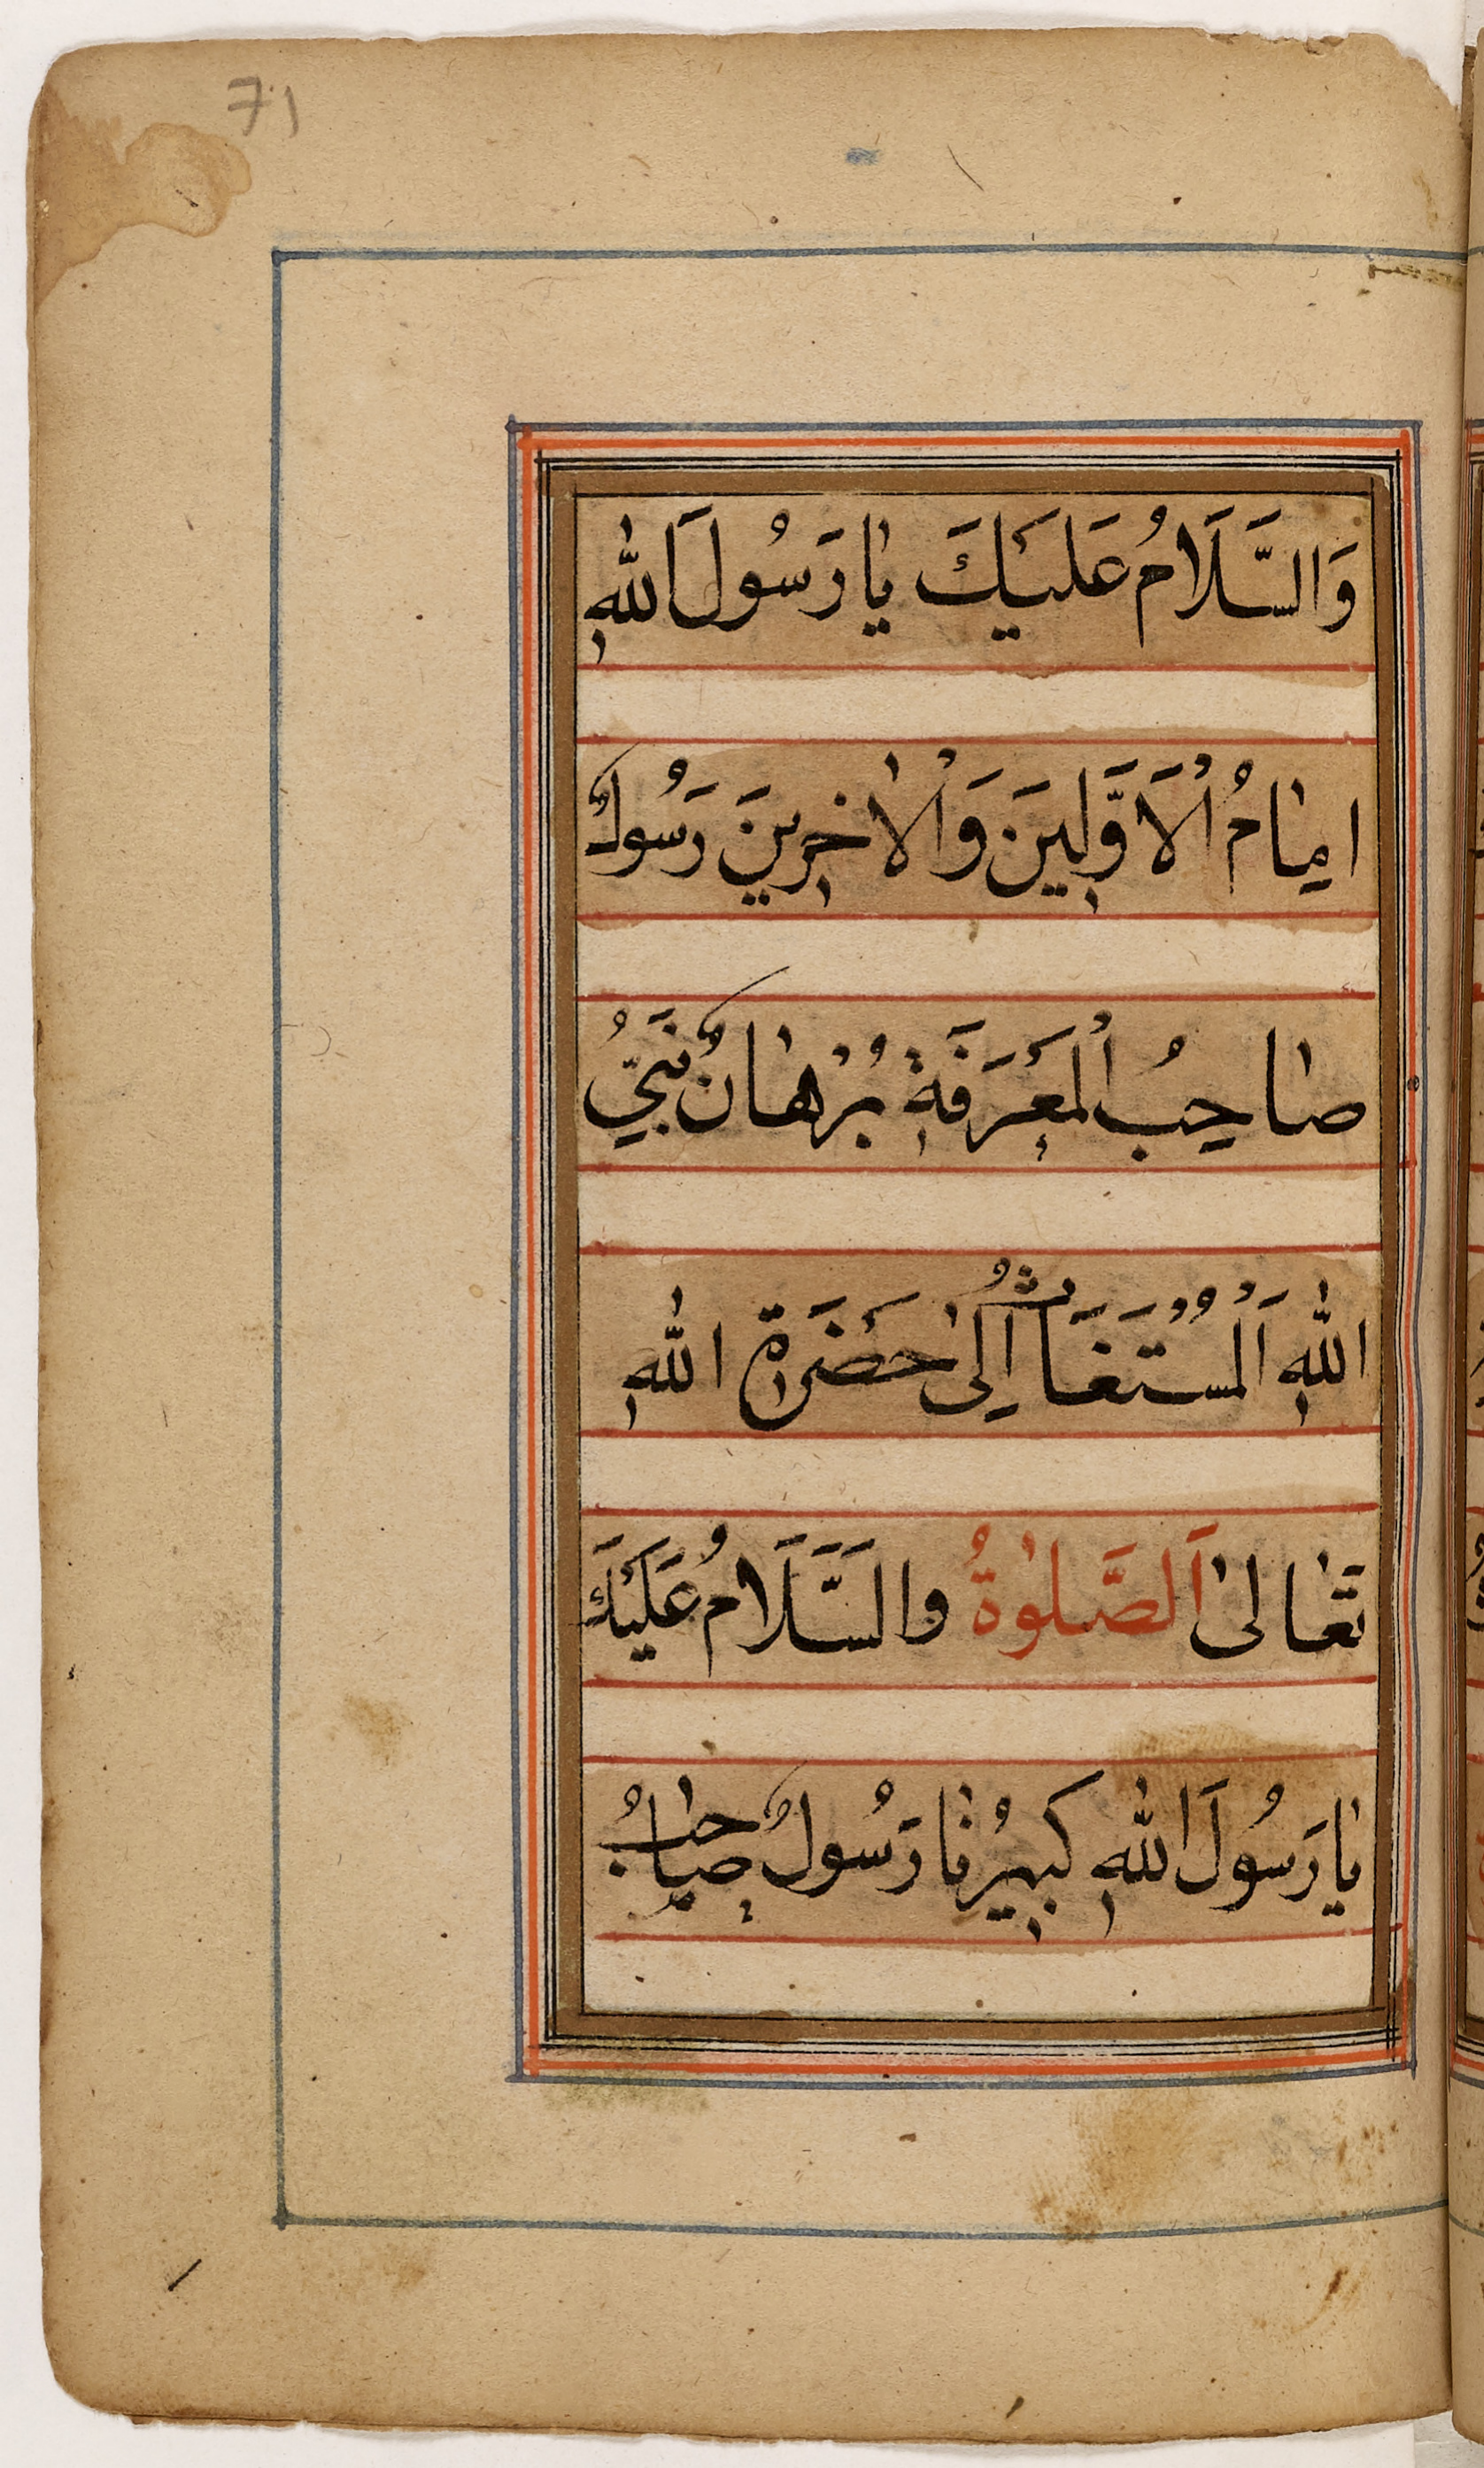 71
وَالسَّلَامُ عَلَيْكَ يٰا رَسُولَ اللّٰهِ
امٰامُ الْاَوَّلِينَ وَالْاٰخِرِينَ رَسُولٌ
صٰاحِبُ الْمَعْرَفَةِ بُرْهٰانٌ نَبِيُّ
اللّٰهِ اَلْمُسْتَغَاثُ اِلىٰ حَضْرَةِ اللّٰهِ
تَعٰالىٰ اَلصَّلٰوةُ والسَّلَامُ عَلَيْكَ
يٰا رَسُولَ اللّٰهِ كَبِيرُنٰا رَسُولٌ صٰاحِبُ